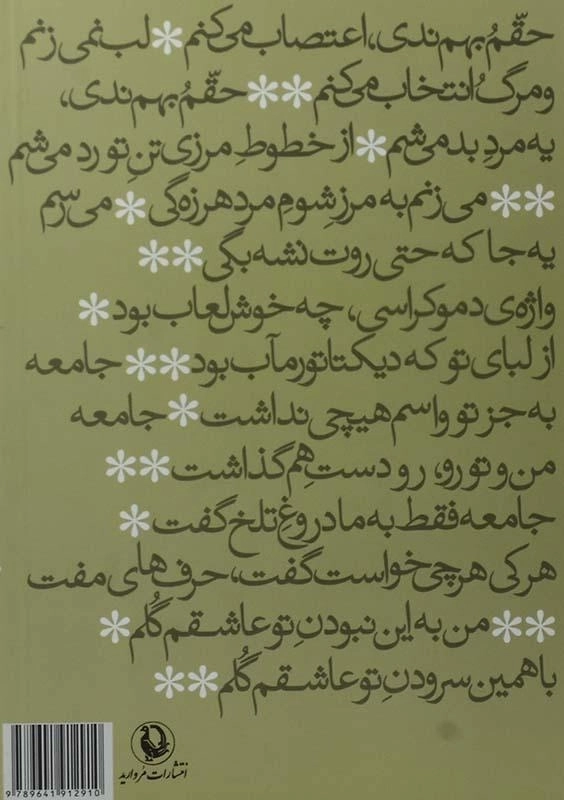 حقّمُ بهم ندی، اعتصاب می‌کنم * لب نمی زنم
و مرگُ انتخاب می‌کنم ** حقّمُ بهم ندی،
یه مردِ بد می‌شم * از خطوطِ مرزیِ تنِ تو رد می‌شم
** می زنم به مرزِ شومِ مردِ هرزه‌گی * می رسم
یه جا که حتی روت نشه بگی **
واژه‌ی دموکراسی، چه خوش لعاب بود *
از لبای تو که دیکتاتور مآب بود ** جامعه
به جز تو واسم هیچی نداشت * جامعه
من و تو رو، رو دستِ هم گذاشت **
جامعه فقط به ما دروغِ تلخ گفت *
هر کی هر چی خواست گفت، حرف های مفت
** من به این نبودنِ تو عاشقم گُلم *
با همین سرودنِ تو عاشقم گُلم **
انتشارات مروارید
9 789641 912910